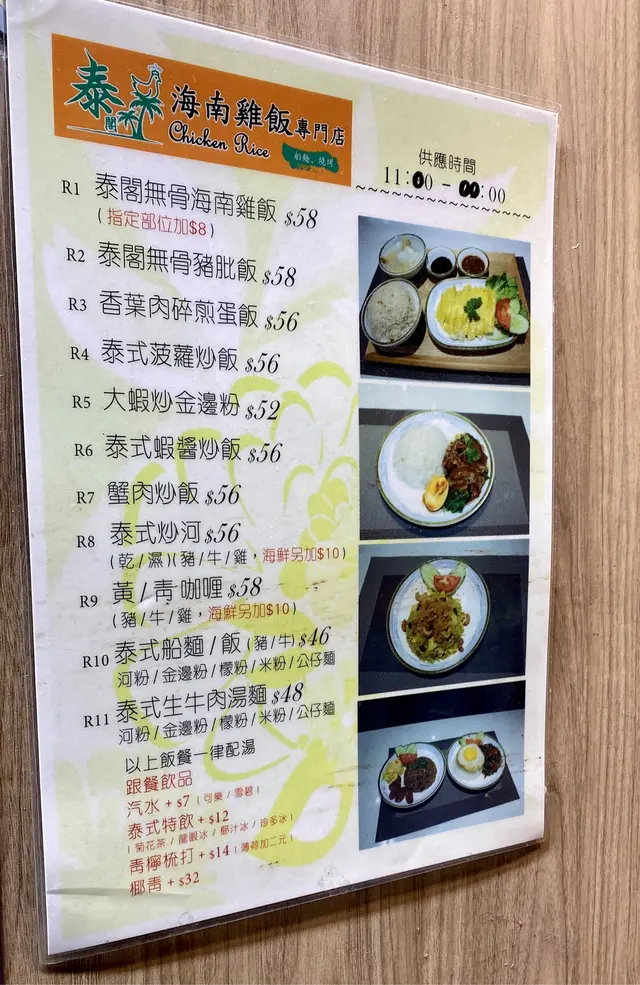 泰
閣
海南雞飯專門店
Chicken Rice
船麵、燒烤
供應時間
11:00 - 00:00
R1 泰閣無骨海南雞飯 $58
(指定部位加$8)
R2 泰閣無骨豬肶飯 $58
R3 香葉肉碎煎蛋飯 $56
R4 泰式菠蘿炒飯 $56
R5 大蝦炒金邊粉 $52
R6 泰式蝦醬炒飯 $56
R7 蟹肉炒飯 $56
R8 泰式炒河 $56
(乾/濕)(豬/牛/雞,海鮮另加$10)
R9 黃/青咖喱 $58
(豬/牛/雞,海鮮另加$10)
R10 泰式船麵/飯(豬/牛) $46
河粉/金邊粉/檬粉/米粉/公仔麵
R11 泰式生牛肉湯麵 $48
河粉/金邊粉/檬粉/米粉/公仔麵
以上飯餐一律配湯
跟餐飲品
汽水 + $7 (可樂/雪碧)
泰式特飲 + $12
(菊花茶/龍眼冰/椰汁冰/珍多冰)
青檸梳打 + $14 (薄荷加二元)
椰青 + $32